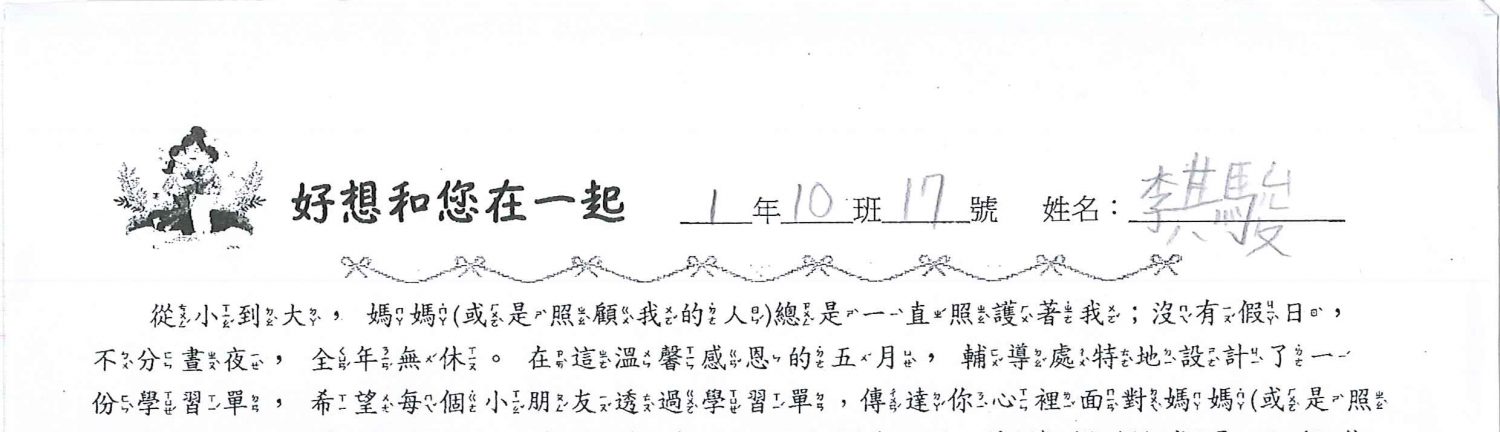 好想和您在一起 1年10班17號 姓名：李其駿
從小到大，媽媽(或是照顧我的人)總是一直照護著我；沒有假日，
不分晝夜，全年無休。在這溫馨感恩的五月，輔導處特地設計了一
份學習單，希望每個小朋友透過學習單，傳達你心裡面對媽媽(或是照